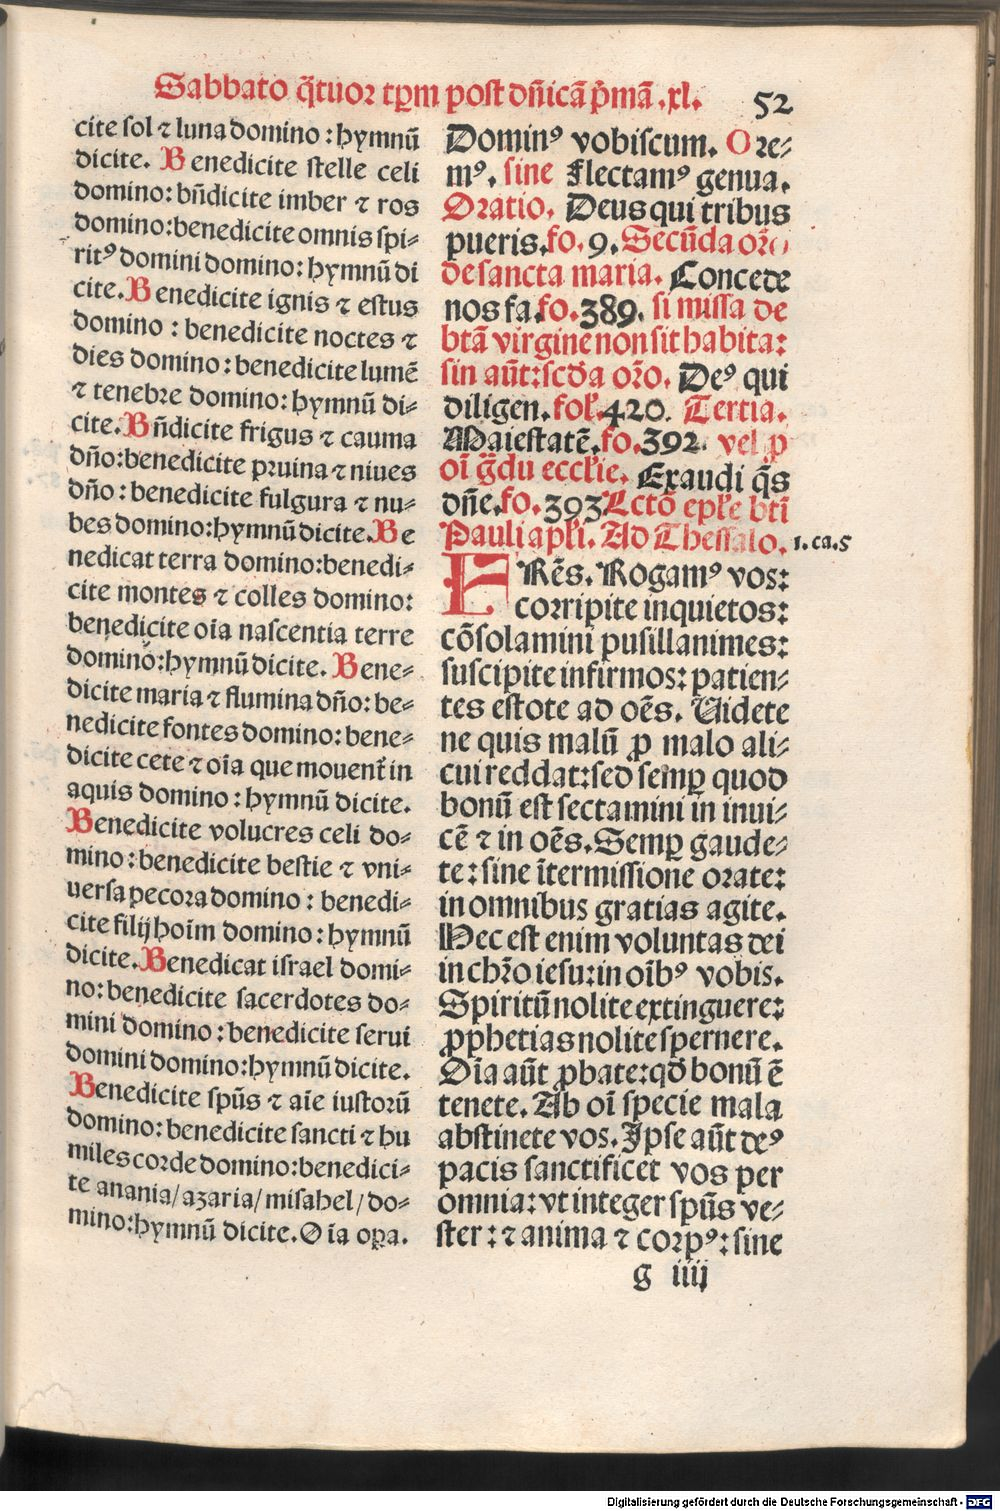 Sabbato q̄tuor tꝑm post dn̄icā p̄mā .xl. 52
cite sol ⁊ luna domino : hymnū
dicite. Benedicite stelle celi
domino: bn̄dicite imber ⁊ ros
domino:benedicite omnis spi⸗
ritꝰ domini domino: hymnū di
cite. Benedicite ignis ⁊ estus
domino : benedicite noctes ⁊
dies domino: benedicite lumē
⁊ tenebre domino: hymnū di⸗
cite. Bn̄dicite frigus ⁊ cauma
dn̄o:benedicite pruina ⁊ niues
dn̄o: benedicite fulgura ⁊ nu⸗
bes domino:hymnū dicite. Be
nedicat terra domino:benedi⸗
cite montes ⁊ colles domino:
benedicite oīa nascentia terre
domino:hymnū dicite. Bene⸗
dicite maria ⁊ flumina dn̄o: be⸗
nedicite fontes domino: bene⸗
dicite cete ⁊ oīa que mouent̄ in
aquis domino: hymnū dicite.
Benedicite volucres celi do⸗
mino: benedicite bestie ⁊ vni⸗
uersa pecora domino: benedi⸗
cite filij hoīm domino: hymnū
dicite. Benedicat israel domi⸗
no: benedicite sacerdotes do⸗
mini domino: benedicite serui
domini domino:hymnū dicite.
Benedicite spūs ⁊ aīe iustorū
domino: benedicite sancti ⁊ hu
miles corde domino:benedici⸗
te anania/ azaria/ misahel/ do⸗
mino:hymnū dicite. Oīa oꝑa.
Dominꝰ vobiscum. Ore⸗
mꝰ. sine Flectamꝰ genua.
Oratio. Deus qui tribus
pueris. fo. 9. Secūda or̄o
de sancta maria. Concede
nos fa. fo. 389. si missa de
btā virgine non sit habita:
sin aūt: scd̄a or̄o. Deꝰ qui
diligen. fol. 420. Tertia.
Maiestatē. fo. 392. vel ꝓ
oī g̈du eccl̄ie. Exaudi q̄s
dn̄e. fo. 393 Lctō epl̄e btī
Pauli apl̄i. Ad Thessalo. 1. ca. 5
FRēs. Rogamꝰ vos:
corripite inquietos:
cōsolamini pusillanimes:
suscipite infirmos: patien⸗
tes estote ad oēs. Uidete
ne quis malū ꝓ malo ali⸗
cui reddat: sed semꝑ quod
bonū est sectamini in inui⸗
cē ⁊ in oēs. Semꝑ gaude⸗
te: sine ītermissione orate:
in omnibus gratias agite.
Hec est enim voluntas dei
in chr̄o iesu: in oībꝰ vobis.
Spiritū nolite extinguere:
ꝓphetias nolite spernere.
Oīa aūt ꝓbate: qd̄ bonū ē
tenete. Ab oī specie mala
abstinete vos. Ipse aūt deꝰ
pacis sanctificet vos per
omnia: vt integer spūs ve⸗
ster: ⁊ anima ⁊ corpꝰ: sine
g iiij
Digitalisierung gefördert durch die Deutsche Forschungsgemeinschaft - DFG